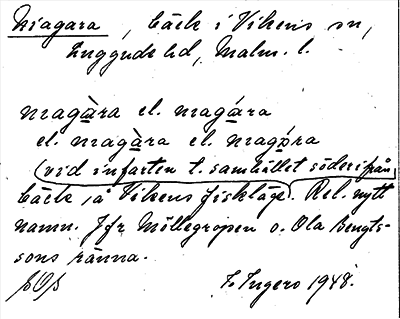 Niagara, bäck i Vikens sn,
Luggude hd, Malm. l.
niagàra el. niagára
el. niagàra el. niagóra
(vid infarten t. samhället söderifrån)
bäck i Vikens fiskläge. Rel. nytt
namn. Jfr Möllegropen o. Ola Bengts-
sons ränna.
F. Ingers 1948.